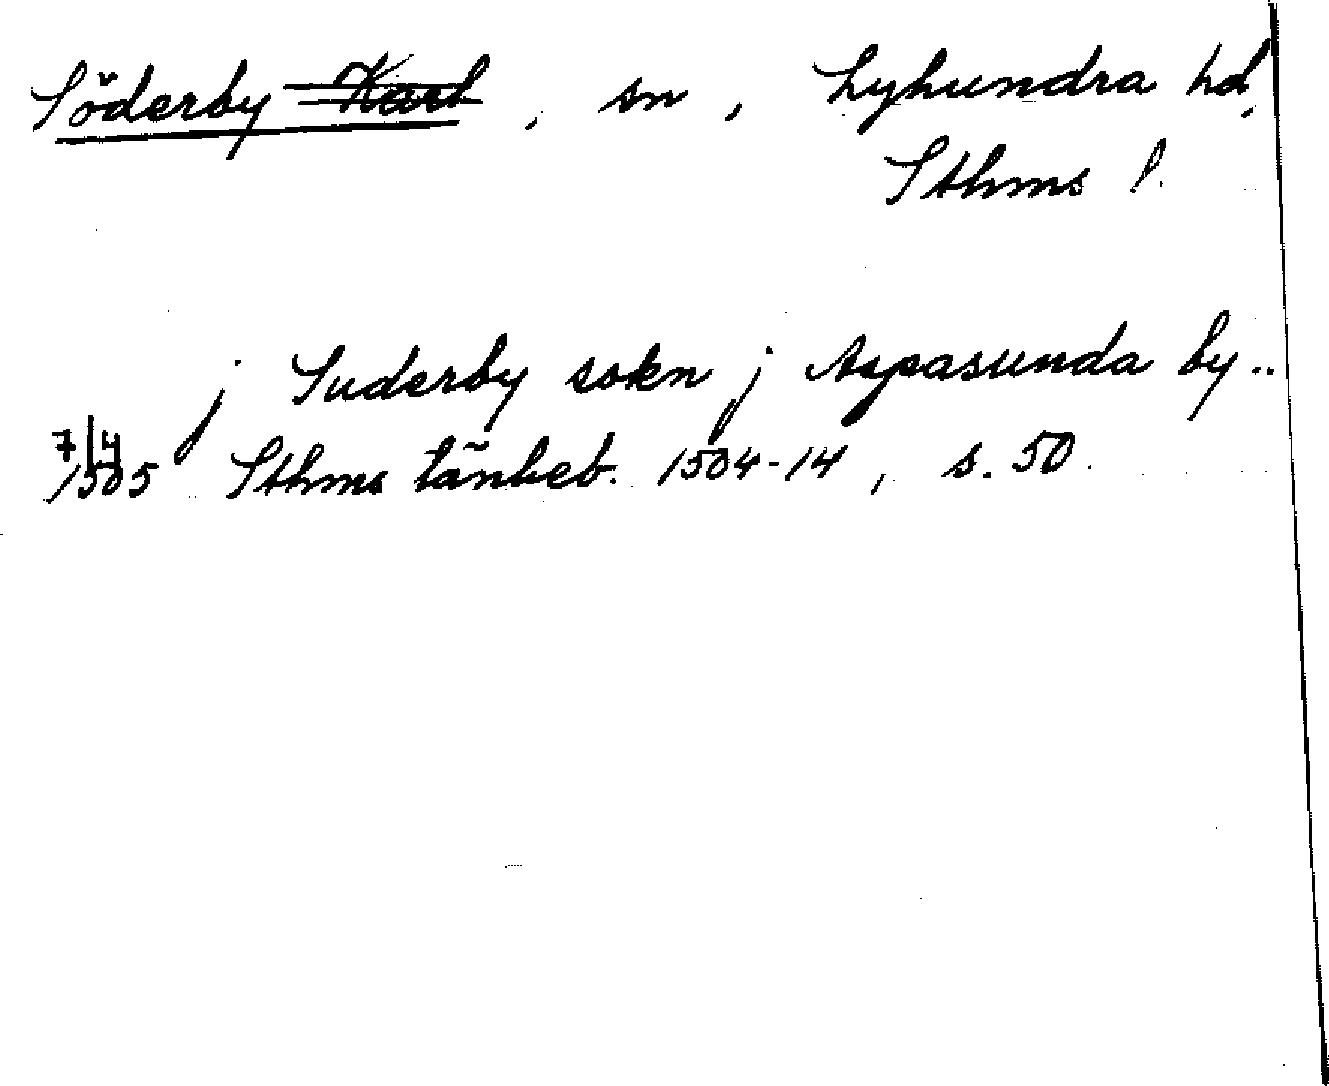 Söderby-Karl, sn, Lyhundra hd,
Sthms l.
j Suderby sokn j Aspasunda by..
7/4 1505 Sthms tänkeb. 1504-14, s. 50.